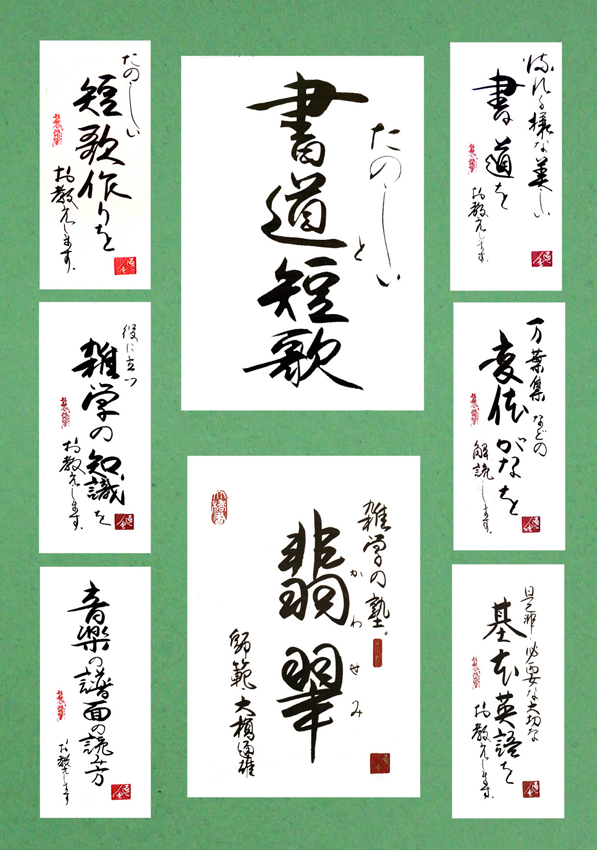 たのしい
書道と短歌
流れる様な美しい
書道を
お教えします。
万葉集などの
変体がなを
解読します。
是非必要な大切な
基本英語を
お教えします。
たのしい
短歌作りを
お教えします。
役に立つ
雑学の知識を
お教えします。
音楽の譜面の読み方
お教えします
雑学の塾。
翡翠
かわせみ
師範 大槓通雄